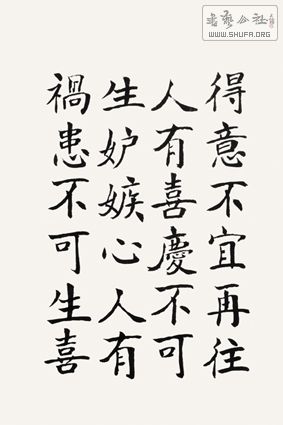 書藝公社
WWW.SHUFA.ORG
得意不宜再往
人有喜慶不可
生妒嫉心人有
禍患不可生喜